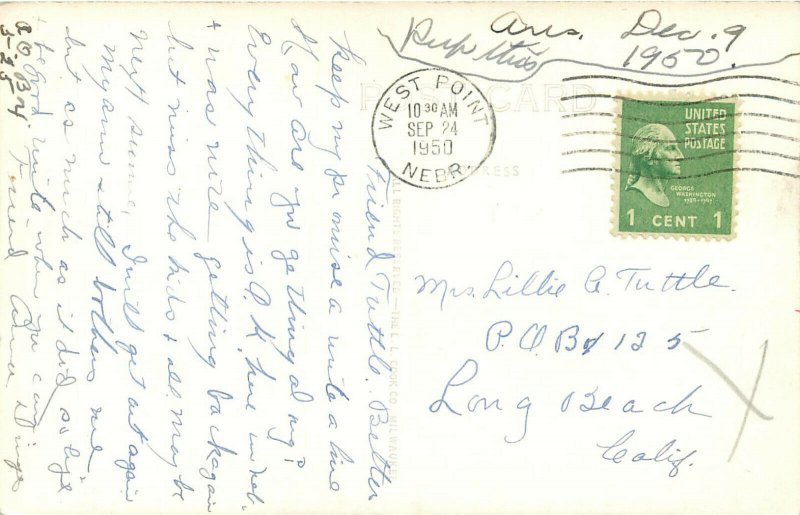 Ans. Dec. 9
Keep this 1950.
POST CARD
ADDRESS
WEST POINT
10 30 AM
SEP 24
1950
NEBR.
UNITED
STATES
POSTAGE
GEORGE
WASHINGTON
1789-1797
1 CENT 1
Mrs. Lillie A. Tuttle.
P O Bx 125
Long Beach
Calif.
ALL RIGHTS RESERVED—THE L. L. COOK CO., MILWAUKEE
Friend Tuttle. Better
keep my promise & write a line
How are you getting along?
Everything is O.K. here in Neb.
& was nice getting back again
but miss the kids & all. maybe
next summer, I will get out again
My arm still bothers me
but as much as it did so
be good write when you can
Friend Anna
P.O. Bx